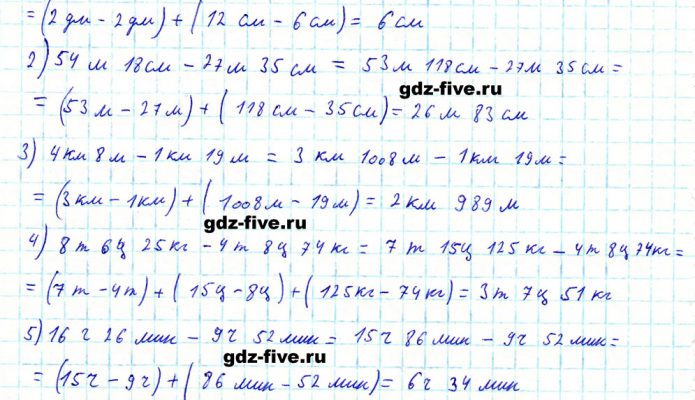 = (2 дм - 2 дм) + (12 см - 6 см) = 6 см
2) 54 м 18 см - 27 м 35 см = 53 м 118 см - 27 м 35 см =
gdz-five.ru
= (53 м - 27 м) + (118 см - 35 см) = 26 м 83 см
3) 4 км 8 м - 1 км 19 м = 3 км 1008 м - 1 км 19 м =
= (3 км - 1 км) + (1008 м - 19 м) = 2 км 989 м
gdz-five.ru
4) 8 т 6 ц 25 кг - 4 т 8 ц 74 кг = 7 т 15 ц 125 кг - 4 т 8 ц 74 кг =
= (7 т - 4 т) + (15 ц - 8 ц) + (125 кг - 74 кг) = 3 т 7 ц 51 кг
5) 16 ч 26 мин - 9 ч 52 мин = 15 ч 86 мин - 9 ч 52 мин =
gdz-five.ru
= (15 ч - 9 ч) + (86 мин - 52 мин) = 6 ч 34 мин